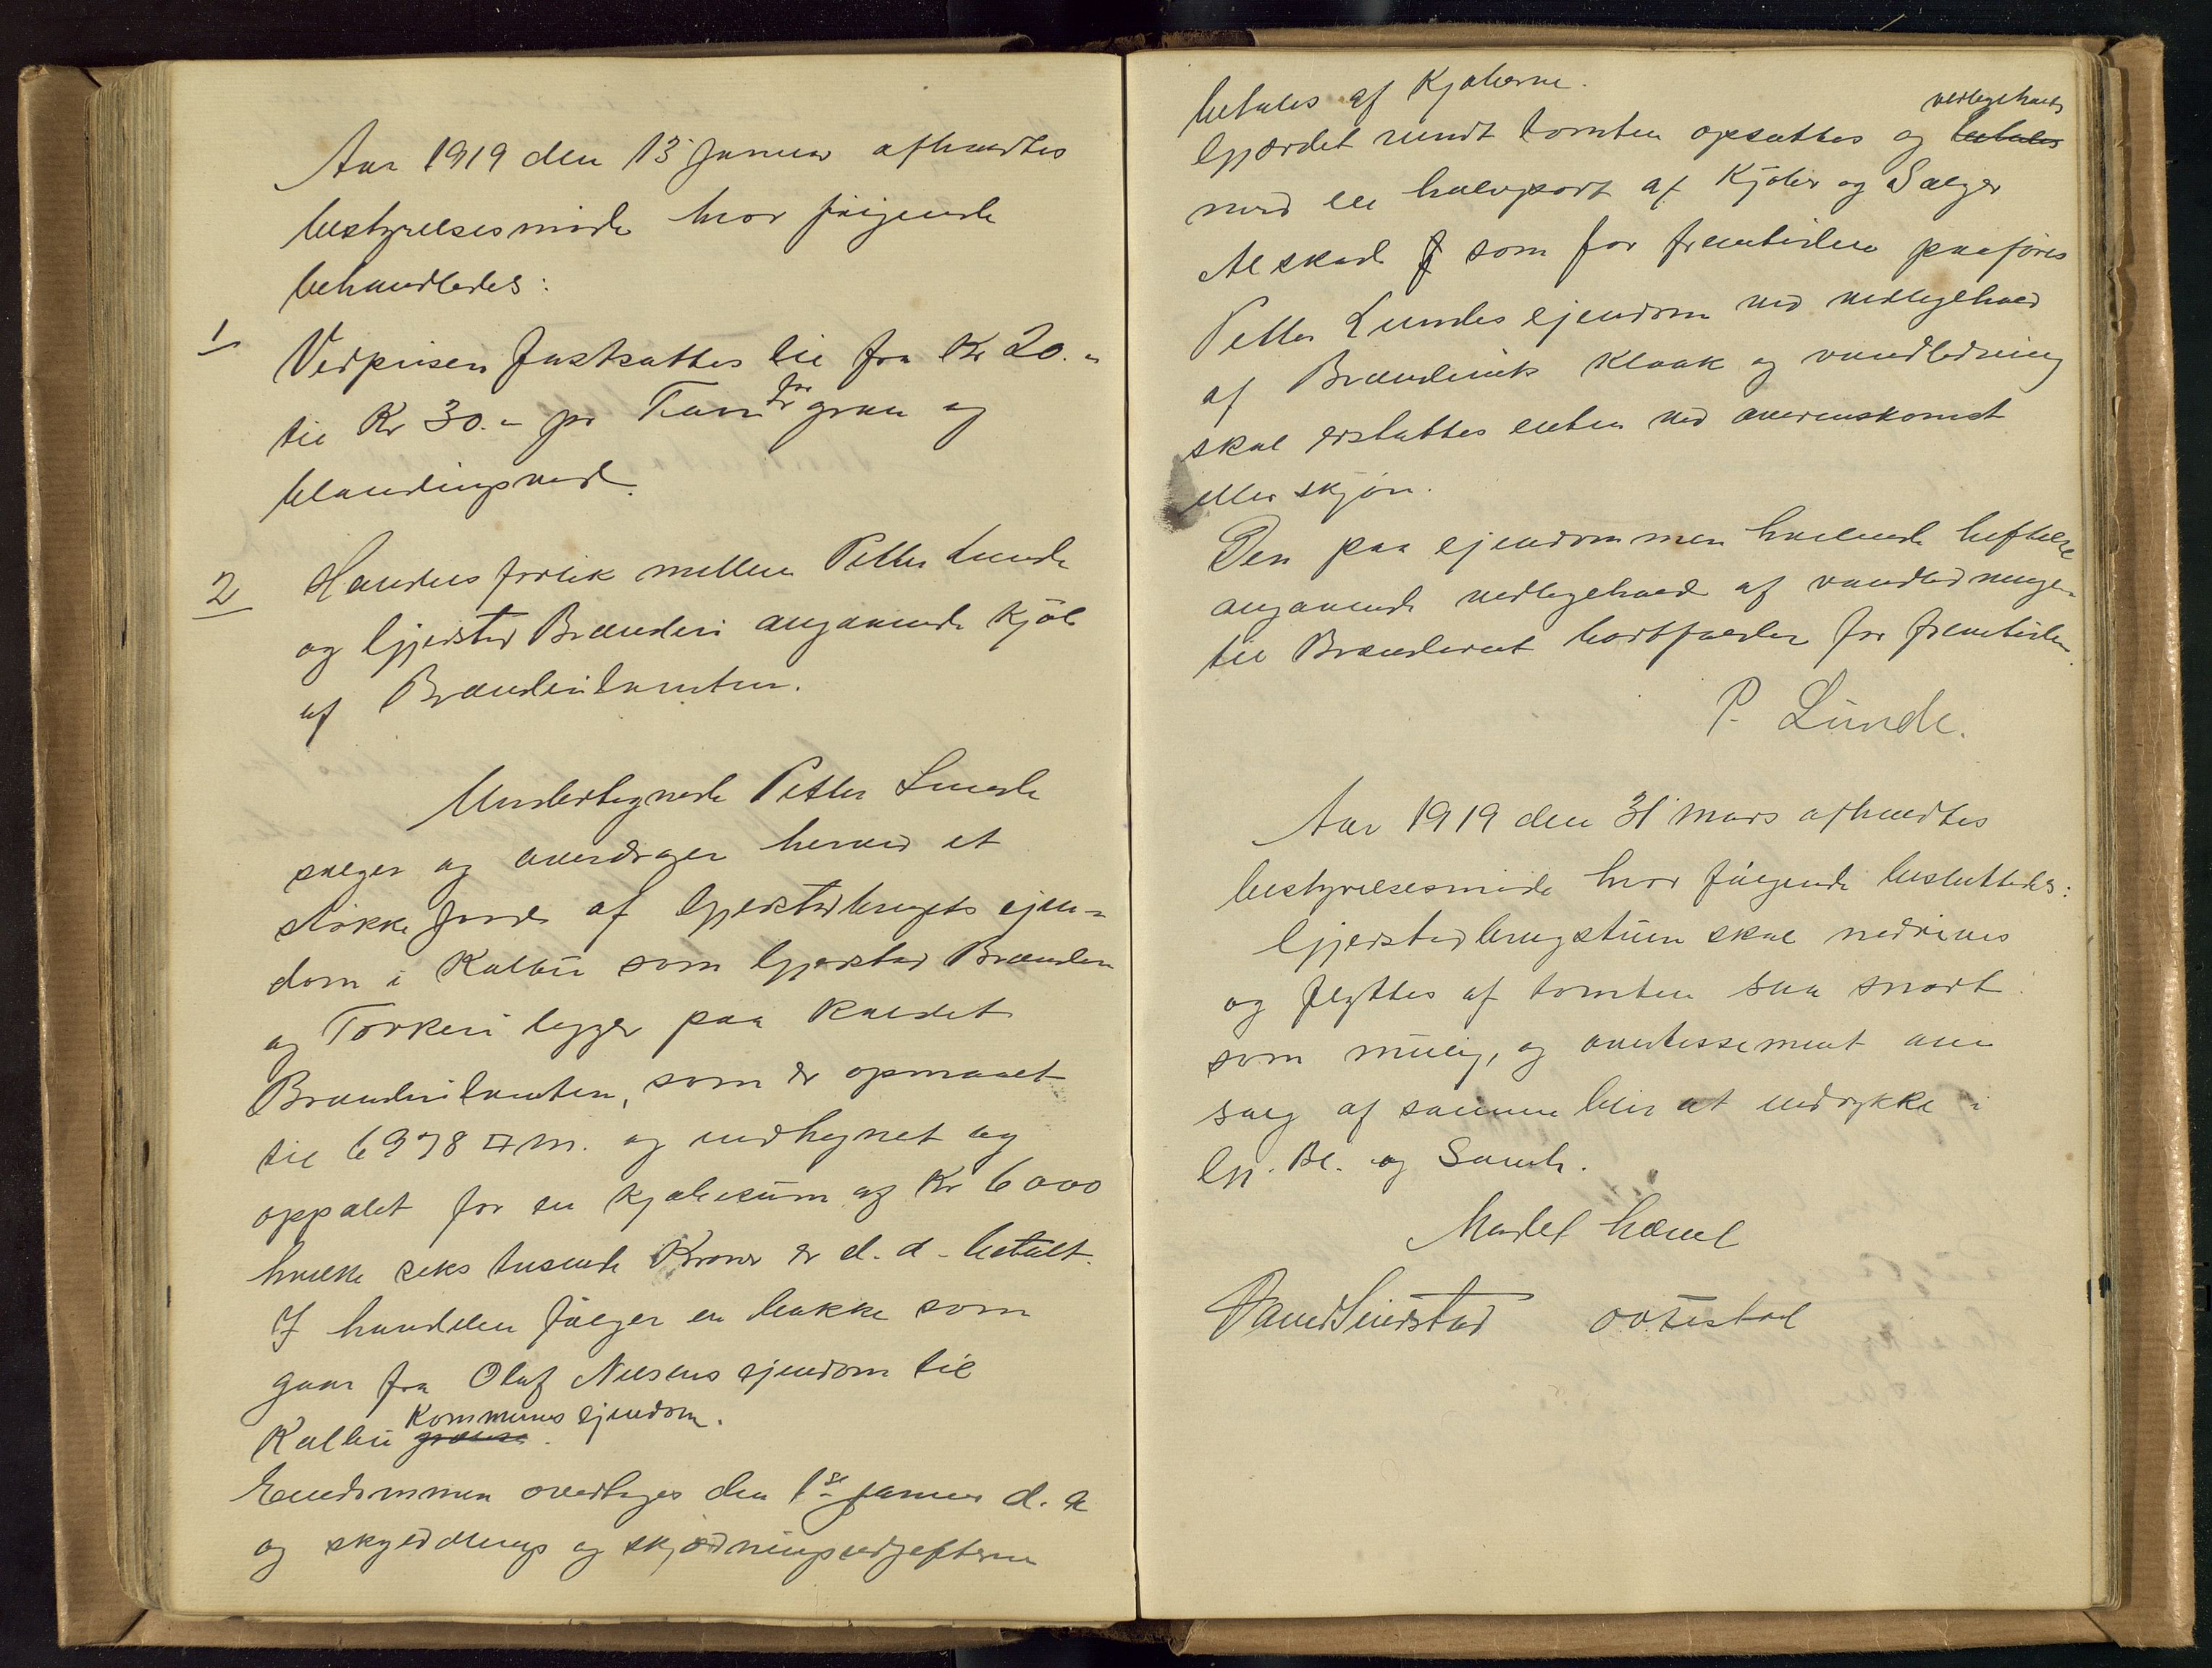 Aar 1919 den 13 Januar afholdtes
bestyrelsesmöde hvor fölgende
behandledes:
1 Vedprisen fastsattes til fra Kr 20.-
til Kr 30.- pr Favn for gran og
blandingsved.
2 Handelsforlik mellem Petter Lunde
og Gjerstad Brænderi angaaende Kjöb
af Brænderitomten.
Undertegnede Petter Lunde
sælger og overdrager herved et
stökke jord af Gjerstadbrugets ejen-
dom i Kolbu som Gjerstad Brænderi
og Törkeri ligger paa kaldet
Brænderitomten, som er opmaalt
til 6978 □ m. og indhegnet og
oppælet for en kjöbesum af Kr 6000
hvilke seks tusende Kroner er d. d. betalt.
I handelen fölger en bakke som
gaar fra Olaf Nilsens ejendom til
Kommunes ejendom.
Kolbu grænse.
Eiendommen overtages den 1ste januar d. a
og skylddelings og skjödningsudgifterne
betales af Kjöberne.
vedligeholdes
Gjærdet rundt tomten opsættes og betales
med en halvpart af Kjöber og Sælger
Al skade som for fremtiden paaföres
Petter Lundes ejendom ved vedligehold
af Brænderiets kloak og vandledning
skal erstattes enten ved overenskomst
eller skjön.
Den paa ejendommen hvilende heftelse
angaaende vedligehold af vandledningen
til Brænderiet bortfalder for fremtiden.
P. Lunde.
Aar 1919 den 31 mars afholdtes
bestyrelsesmöde hvor fölgende besluttedes:
Gjerstadbrugstuen skal nedrives
og flyttes af tomten saa snart
som mulig, og avertissement om
salg af samme blir at indrykke i
Gj. Bl. og Samh.